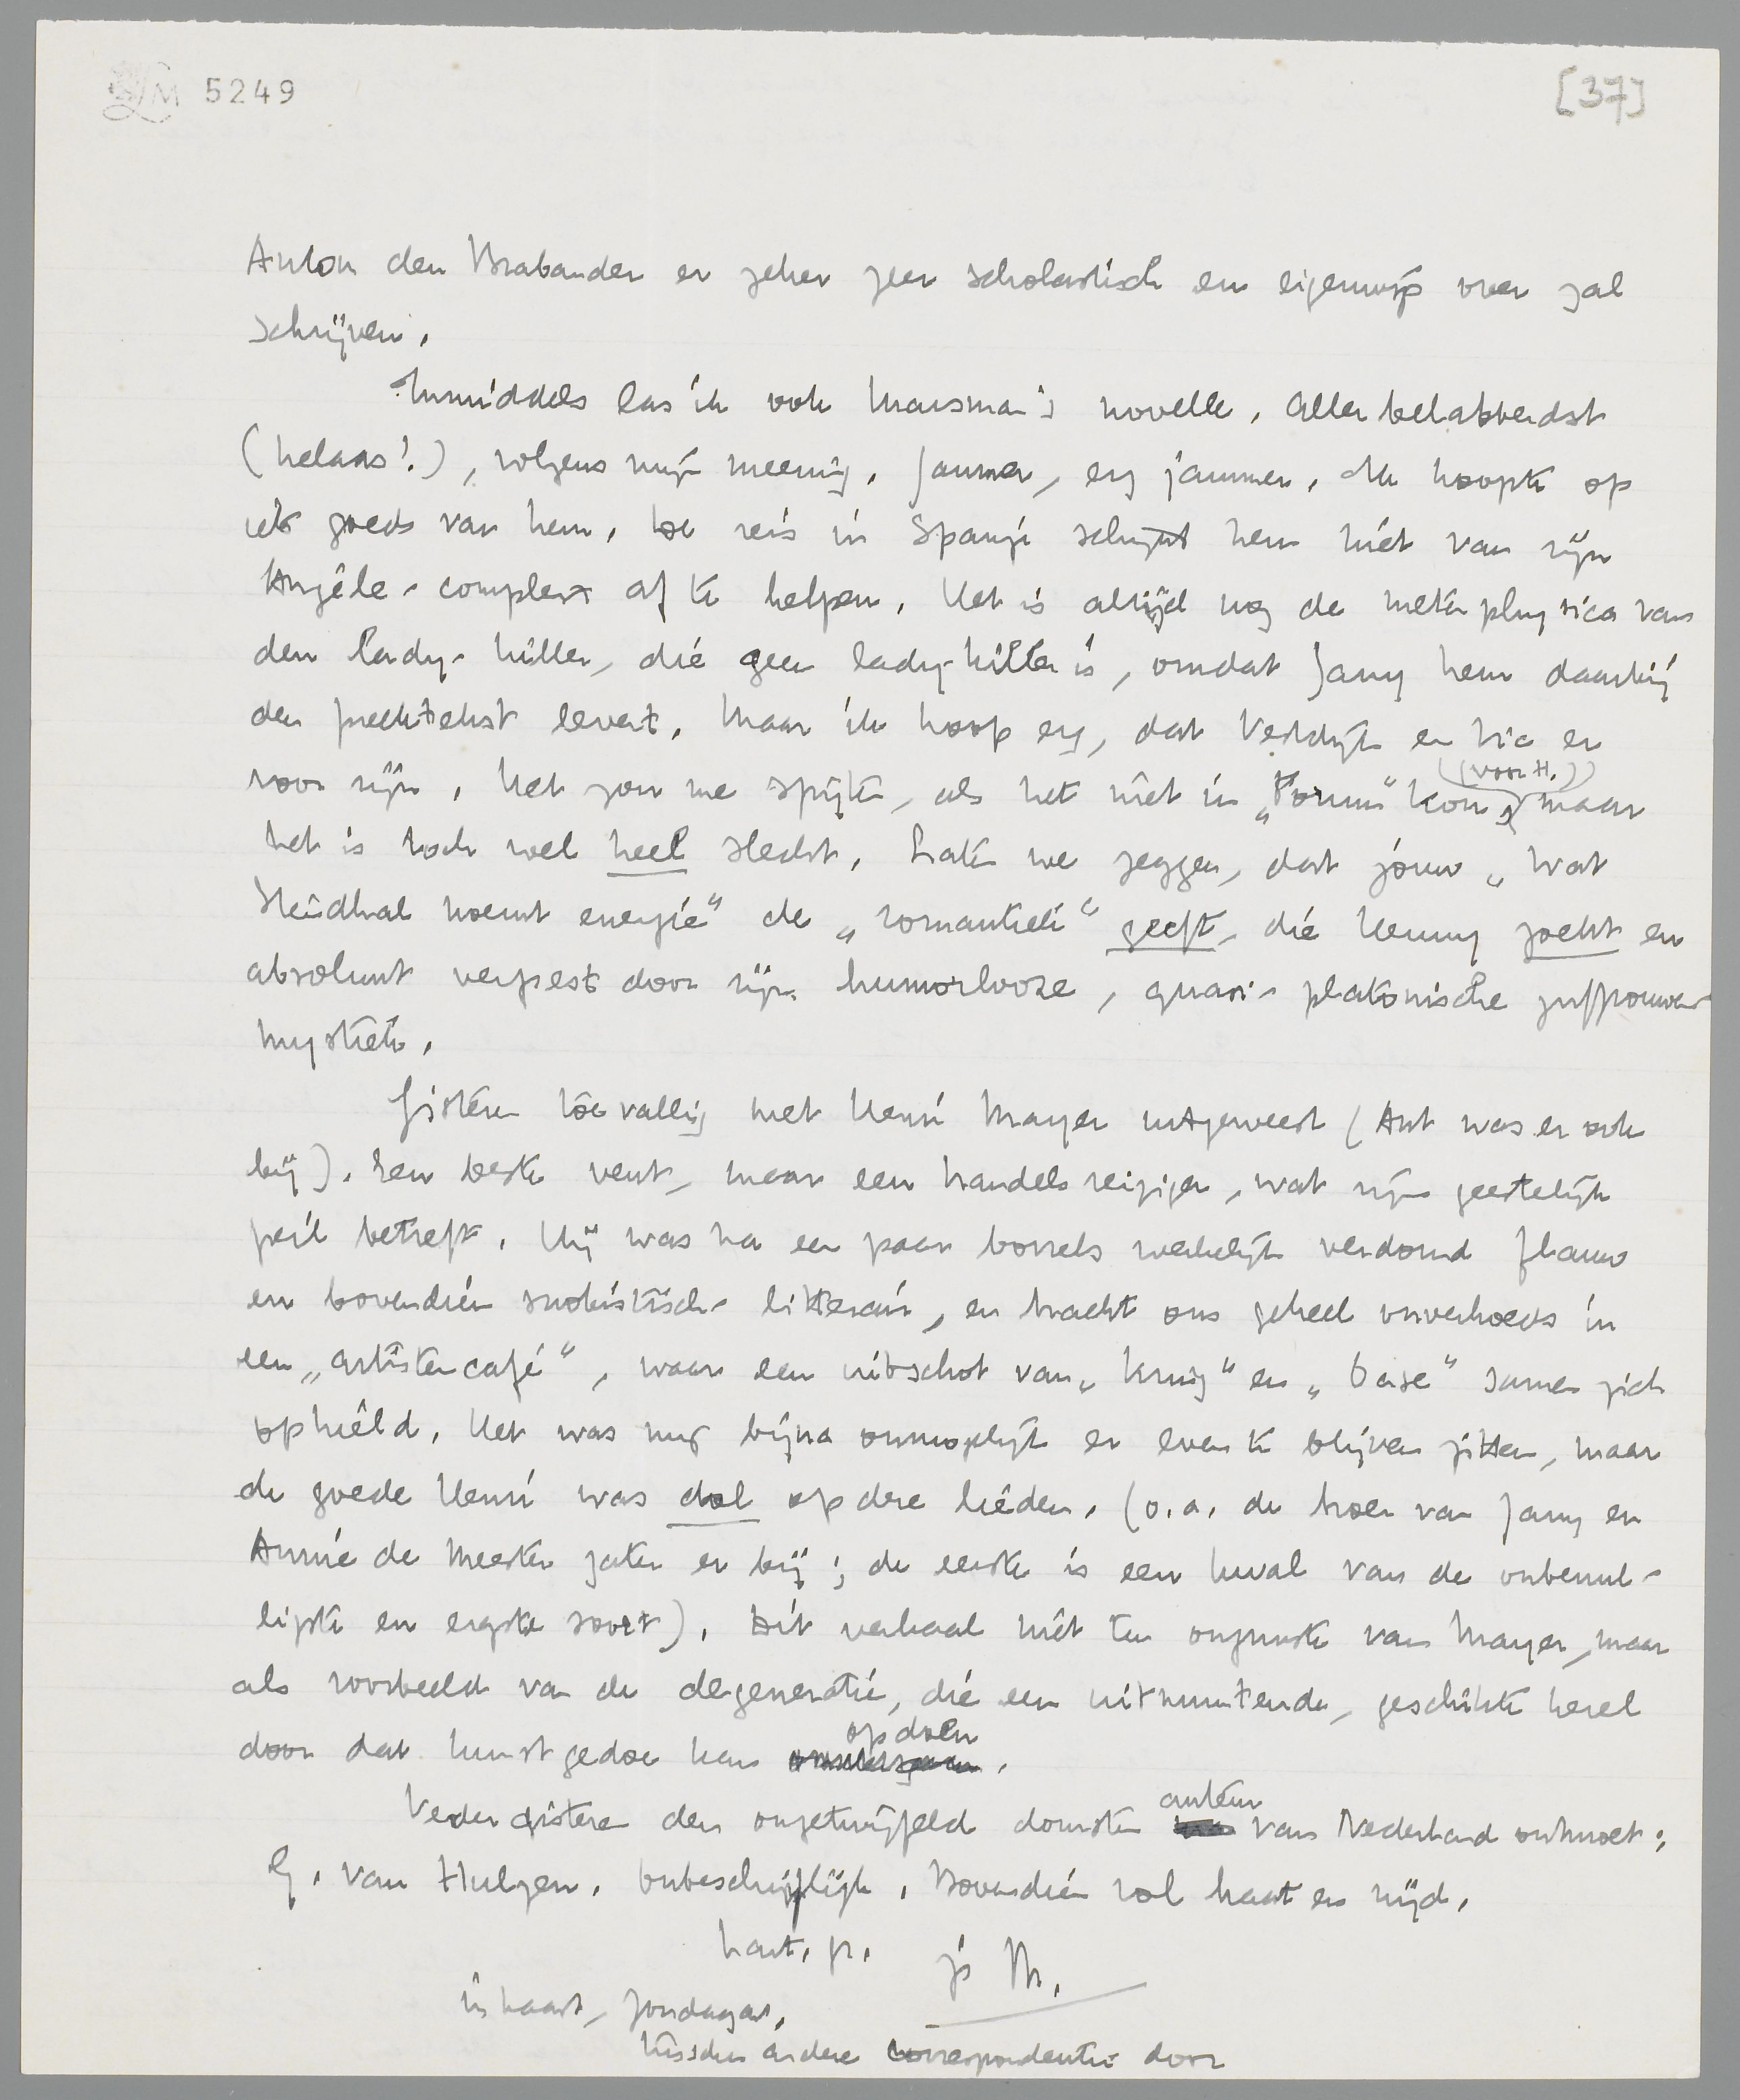 LM 5249
[37]
Anton den Brabander er zeker zeer scholastisch en eigenwijs over zal
schrijven.
Inmiddels las ik ook Marsman's novelle. Allerbelabberdst
(helaas!), volgens mijn meening. Jammer, erg jammer. Ik hoopte op
iets goeds van hem. De reis in Spanje schijnt hem niet van zijn
Angèle-complex af te helpen. Het is altijd nog de metaphysica van
den lady-killer, die geen lady-killer is, omdat Jany hem daarbij
den prachttekst levert. Maar ik hoop erg, dat Vestdijk en Vic er
voor zijn. Het zou me spijten, als het niet in „Forum" kon, (voor H.) maar
het is toch wel heel slecht. Laten we zeggen, dat jouw „Wat
Stendhal noemt energie" de „romantiek" geeft, die Henny zoekt en
absoluut verpest door zijn humorlooze, quasi-platonische juffrouwen-
mystiek.
Gisteren toevallig met Henri Mayer uitgeweest (Ant was er ook
bij). Een beste vent, maar een handelsreiziger, wat zijn geestelijk
peil betreft. Hij was na een paar borrels werkelijk verdomd flauw
en bovendien snobistisch-litterair, en bracht ons geheel onverhoeds in
een „artistencafé", waar een uitschot van „Kring" en „Oase" samen zich
ophield. Het was mij bijna onmogelijk er even te blijven zitten, maar
de goede Henri was dol op deze lieden. (o.a. de broer van Jany en
Annie de Meester zaten er bij; de eerste is een kwal van de onbenul-
ligste en ergste soort). Dit verhaal niet ten ongunste van Mayer, maar
als voorbeeld van de degeneratie, die een uitmuntende, geschikte kerel
door dat kunstgedoe kan opdoen.
Eergisteren den ongetwijfeld domsten auteur van Nederland ontmoet:
G. van Hulzen. Onbeschrijflijk. Bovendien vol haat en nijd.
hart. gr. je M.
in haast, zondagav.
tusschen andere correspondentie door